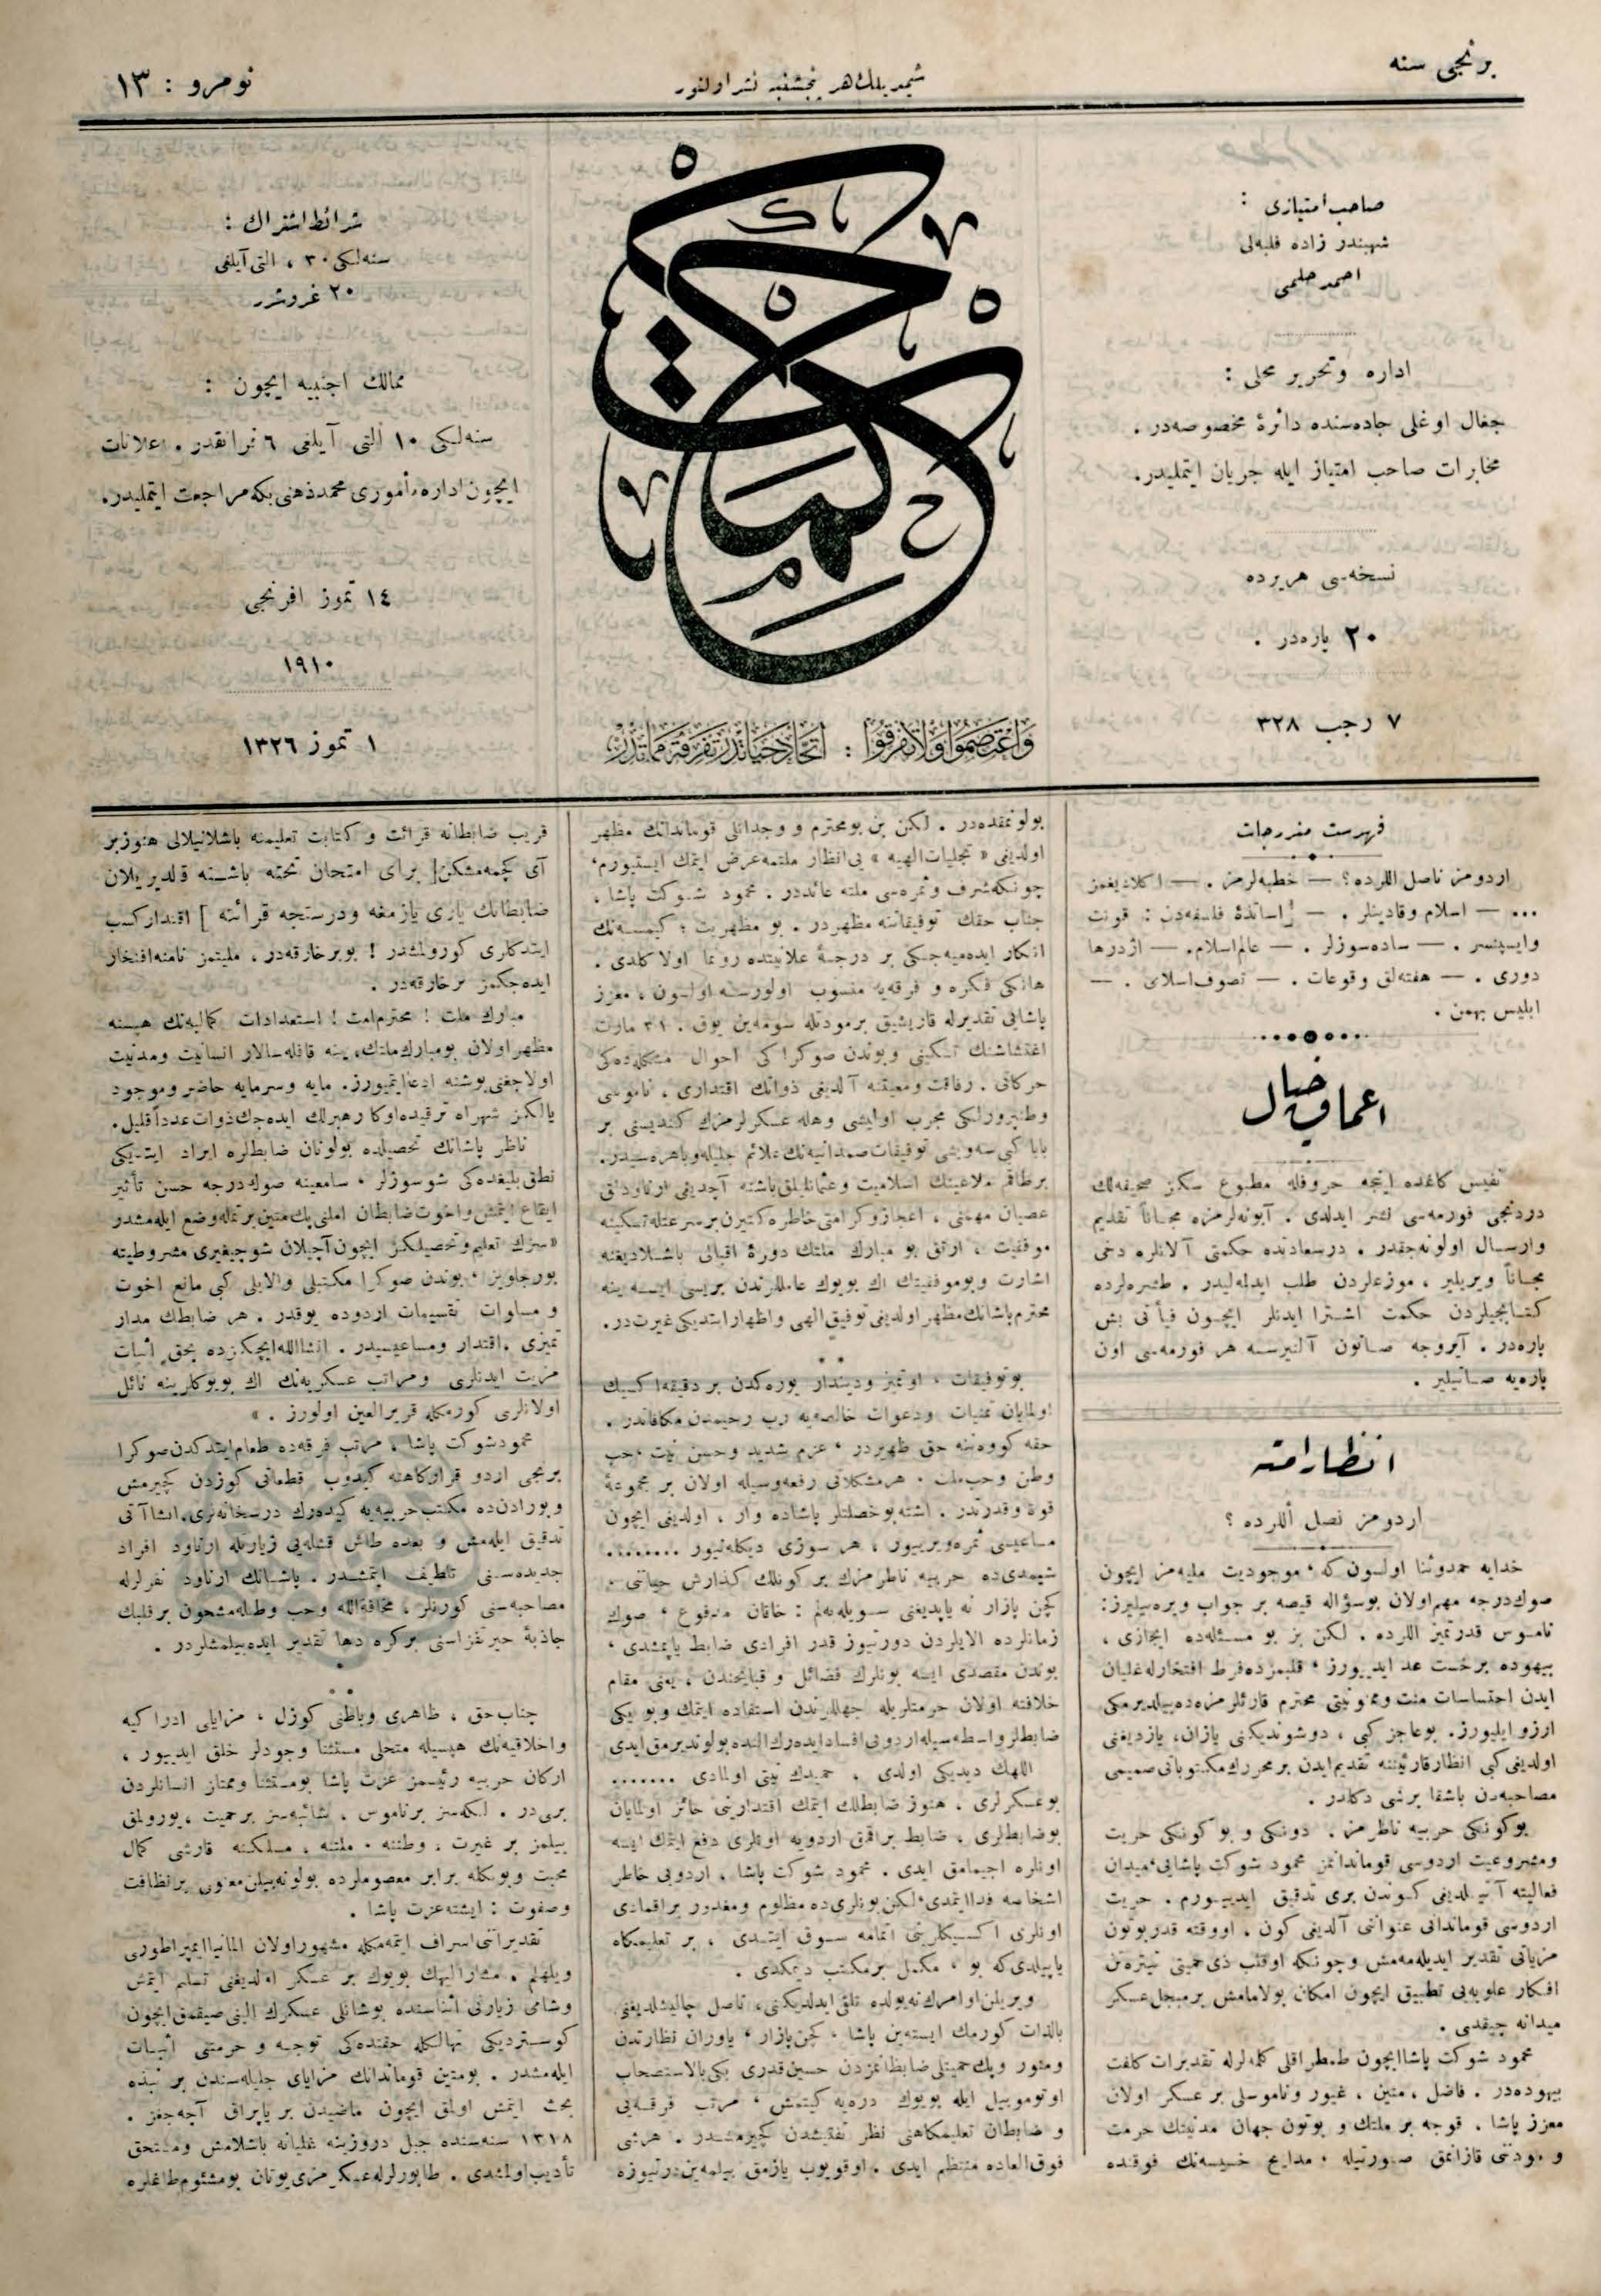 برنجی سنه
شیمدیلك هر پنجشنبه نشر اولنور
نومرو : ١٣
صاحب امتیازی :
شهبندر زاده فلبه‌لی
احمد حلمی
اداره وتحریر محلی :
جغال اوغلی جاده‌سنده دائرهٔ مخصوصه‌در .
مخابرات صاحب امتیاز ایله جریان ایتملیدر.
نسخه‌سی هر یرده
٢٠ پاره‌در .
٧ رجب ٣٢٨
حكمت
واعتصموا ولا تفرقوا : اتحاد حیاتدر تفرقه مماتدر
شرائط اشتراك :
سنه‌لكی ٣٠ ، التی آیلغی
٢٠ غروشدر
ممالك اجنبیه ایچون :
سنه‌لكی ١٠ التی آیلغی ٦ فرانقدر . اعلانات
ایچون اداره مأموری محمد ذهنی بكه مراجعت ایتملیدر.
١٤ تموز افرنجی
١٩١٠
١ تموز ١٣٢٦
فهرست مندرجات
اردومز ناصل اللرده؟ — خطبه‌لرمز . — اكلادیغمز
... — اسلام وقادینلر . — اساتذهٔ فلسفه‌دن : قونت
وایسپنسر . — ساده سوزلر . — عالم اسلام. — اژدرها
دوری . — هفته‌لق وقوعات . — تصوف اسلامی . —
ابلیس بهمن .
اعماق خیال
نفیس كاغده اینجه حروفله مطبوع سكز صحیفه‌لك
دردنجی فورمه‌سی نشر ایدلدی . آبونه‌لرمزه مجاناً تقدیم
وارسال اولونه‌جقدر . درسعادتده حكمتی آلانلره دخی
مجاناً ویریلیر ، موزعلردن طلب ایدلمه‌لیدر . طشره‌لرده
كتابجیلردن حكمت اشترا ایدنلر ایچون فیأتی بش
پاره‌در . آیروجه صاتون آلنیرسه هر فورمه‌سی اون
پاره‌یه صاتیلیر .
انظار امته
اردومز نصل اللرده ؟
خدایه حمدوثنا اولسون كه ، موجودیت ملیه‌مز ایچون
صوك درجه مهم اولان بوسؤاله قیصه بر جواب ویره‌بیلیرز:
ناموس قدر تمیز اللرده . لكن بز بو مسئله‌ده ایجازی ،
بیهوده برخست عد ایدییورز ، قلبمزده فرط افتخارله غلیان
ایدن احتساسات منت وممنونیتی محترم قارئلرمزه‌ده بیلدیرمكی
ارزو ایلیورز. بوعاجز كبی ، دوشوندیكنی یازان، یازدیغنی
اولدیغی كبی انظار قارئیننه تقدیم ایدن برمحررك مكتوباتی صمیمی
مصاحبه‌دن باشقا برشی دكلدر .
بوكونكی حربیه ناظرمز . دونكی و بوكونكی حریت
ومشروعیت اردوسی قوماندانمز محمود شوكت پاشایی ، میدان
فعالیته آتیلدیغی كوندن بری تدقیق ایدییورم . حریت
اردوسی قوماندانی عنواننی آلدیغی كون ، اووقته قدر بوتون
مزیاتی تقدیر ایدیله‌مه‌مش وچونكه اوقلب ذی حمیتی تیتره‌تن
افكار علویه‌یی تطبیق ایچون امكان بولامامش برمبجل عسكر
میدانه چیقدی .
محمود شوكت پاشا ایچون طمطراقلی كلمه‌لرله تقدیرات كلفت
بیهوده‌در . فاضل ، متین ، غیور وناموسلی بر عسكر اولان
معزز پاشا . قوجه بر ملتك و بوتون جهان مدنیتك حرمت
و مودتنی قازانمق صورتیله ، مدایح خسیسه‌نك فوقنده
بولونمقده‌در . لكن بن بومحترم و وجدانلی قوماندانك مظهر
اولدیغی « تجلیات الهیه » یی انظار ملتمه عرض ایتمك ایستیورم ،
چونكه شرف وثمره‌سی ملته عائددر . محمود شوكت پاشا ،
جناب حقك توفیقاتنه مظهردر . بو مظهریت ؛ كیمسه‌نك
انكار ایده‌میه‌جكی بر درجهٔ علانیتده رونما اولا كلدی .
هانكی فكره و فرقه‌یه منسوب اولورسه اولسون ، معزز
پاشایی تقدیرله قاریشیق برمودتله سومه‌ین یوق . ٣١ مارت
اغتشاشنك تسكینی وبوندن صوكرا كی احوال مشكله‌ده‌كی
حركاتی . رفاقت ومعیتنه آلدیغی ذواتك اقتداری ، ناموسی
وطنپرورلكی مجرب اولیشی وهله عسكرلرمزك كندیسنی بر
بابا كبی سه‌ویشی توفیقات صمدانیه‌نك علائم جلیله وباهره‌سیدر.
برطاقم ملاعینك اسلامیت وعثمانلیلق باشنه آچدیغی ارناودلق
عصیان مهمنی ، اعجازوكرامتی خاطره كتیرن برسرعتله تسكینه
موفقیت ، ارتق بو مبارك ملتك دورهٔ اقبالی باشلادیغنه
اشارت وبوموفقیتك اك بویوك عامللرندن بریسی ایسه ینه
محترم پاشانك مظهر اولدیغی توفیق الهی و اظهار ایتدیكی غیرت‌در.
بوتوفیقات ، اوتمیز ودیندار یوره‌كدن بر دقیقه اكسیك
اولمایان تمنیات ودعوات خالصه‌یه رب رحیمدن مكافاتدر .
حقه كووه‌ننه حق ظهیردر ، عزم شدید وحسن نیت ، حب
وطن وحب ملت . هر مشكلاتی رفعه وسیله اولان بر مجموعهٔ
قوة وقدرتدر . اشته بوخصلتلر پاشاده وار ، اولدیغی ایچون
مساعیسی ثمره ویرییور ، هر سوزی دیكله‌نیور ........
شیمدی‌ده حربیه ناظرمزك بر كونلك كذارش حیاتنی .
كچن پازار نه یاپدیغنی سویله‌یه‌لم : خاقان مخلوع ، صوك
زمانلرده الایلردن دورتیوز قدر افرادی ضابط یاپمشدی ،
بوندن مقصدی ایسه بونلرك فضائل و قبایحندن ، یعنی مقام
خلافته اولان حرمتلریله جهللرندن استفاده ایتمك وبو یكی
ضابطلر واسطه‌سیله اردویی افساد ایده‌رك النده بولوندیرمق ایدی
اللهك دیدیكی اولدی ، حمیدك نیتی اولمادی .......
بوعسكرلری ، هنوز ضابطلك ایتمك اقتدارنی حائز اولمایان
بوضابطلری ، ضابط براقمق اردویه اونلری دفع ایتمك ایسه
اونلره اجیمامق ایدی . محمود شوكت پاشا ، اردویی خاطر
اشخاصه فدا ایتمدی ، لكن بونلری‌ده مظلوم ومغدور براقمادی
اونلری اكسیكلرینی اتمامه سوق ایتدی ، بر تعلیمكاه
یاپیلدی كه بو ، مكمل برمكتب دیمكدی .
ویریلن اوامرك نه‌یولده تلقی ایدلدیكنی، ناصل چالیشلدیغنی
بالذات كورمك ایسته‌ین پاشا ، كچن پازار ، یاوران نظارتدن
ومنور وپك حمیتلی ضابطانمزدن حسین قدری بكی بالاستصحاب
اوتوموبیل ایله بویوك دره‌یه كیتمش ، مرتب فرقه‌یی
و ضابطان تعلیمكاهنی نظر تفتیشدن كچیرمشدر . هرشی
فوق العاده منتظم ایدی . اوقویوب یازمق بیلمه‌ین درتیوزه
قریب ضابطانه قرائت و كتابت تعلیمنه باشلانیلالی هنوز بر
آی كچمه‌مشكن [ برای امتحان تخته باشنه قالدیریلان
ضابطانك یازی یازمغه ودرستجه قرائته ] اقتدار كسب
ایتدكلری كورولمشدر ! بو برخارقه‌در ، ملیتمز نامنه افتخار
ایده‌جكمز برخارقه‌در .
مبارك ملت ! محترم امت ! استعدادات كمالیه‌نك هپسنه
مظهر اولان بومبارك ملتك، ینه قافله سالار انسانیت ومدنیت
اولاجغنی بوشنه ادعا ایتمیورز. مایه وسرمایه حاضر وموجود
یالكز شهراه ترقیده اوكا رهبرلك ایده‌جك ذوات عدداً قلیل .
ناظر پاشانك تحصیلده بولونان ضابطلره ایراد ایتدیكی
نطق بلیغده‌كی شو سوزلر ، سامعینه صوك درجه حسن تأثیر
ایقاع ایتمش واخوت ضابطان املنی پك متین برتمله وضع ایله‌مشدر
« سزك تعلیم وتحصیلكز ایچون آچیلان شو چیغیری مشروطیته
بورجلویز ، بوندن صوكرا مكتبلی والایلی كبی مانع اخوت
و مساوات تقسیمات اردوده یوقدر . هر ضابطك مدار
تمیزی ، اقتدار ومساعیسیدر . انشاالله ایچكزده بحق اثبات
مزیت ایدنلری ومراتب عسكریه‌نك اك بویوكلرینه نائل
اولانلری كورمكله قریر العین اولورز . »
محمود شوكت پاشا ، مرتب فرقه‌ده طعام ایتدكدن صوكرا
برنجی اردو قراركاهنه كیدوب قطعاتی كوزدن كچیرمش
وبورادن‌ده مكتب حربیه‌یه كیده‌رك درسخانه‌لری، انشاآتی
تدقیق ایله‌مش و بعده طاش قشله‌یی زیارتله ارناود افراد
جدیده‌سنی تلطیف ایتمشدر . پاشانك ارناود نفرلرله
مصاحبه‌سنی كورنلر ، مخافةالله وحب وطنله مشحون بر قلبك
جاذبهٔ حیرتفزاسنی بركره دها تقدیر ایده‌بیلمشلردر .
جناب حق ، ظاهری وباطنی كوزل ، مزایای ادراكیه
واخلاقیه‌نك هپسیله متحلی مستثنا وجودلر خلق ایدییور ،
اركان حربیه رئیسمز عزت پاشا بومستثنا وممتاز انسانلردن
بری‌در . لكه‌سز برناموس ، شائبه‌سز برحمیت ، یورولمق
بیلمز بر غیرت ، وطننه ، ملتنه ، مسلكنه قارشی كمال
محبت وبونكله برابر معصوملرده بولونه‌بیلن معنوی برنظافت
وصفوت : ایشته عزت پاشا .
تقدیراتنی اسراف ایتمه‌مكله مشهور اولان المانیا ایمپراطوری
ویلهلم . مشارالیهك بویوك بر عسكر اولدیغنی تسلیم ایتمش
وشامی زیارتی اثناسنده بوشانلی عسكرك النی صیقمق ایچون
كوستردیكی تهالكله حقنده‌كی توجه و حرمتنی اثبات
ایله‌مشدر . بومتین قوماندانك مزایای جلیله‌سندن بر نبذه
بحث ایتمش اولمق ایچون ماضیدن بر یاپراق آچه‌جغز .
١٣١٨ سنه‌سنده جبل دروزینه غلیانه باشلامش ومستحق
تأدیب اولمشدی . طابورلرله عسكرمزی یوتان بومشئوم طاغلره